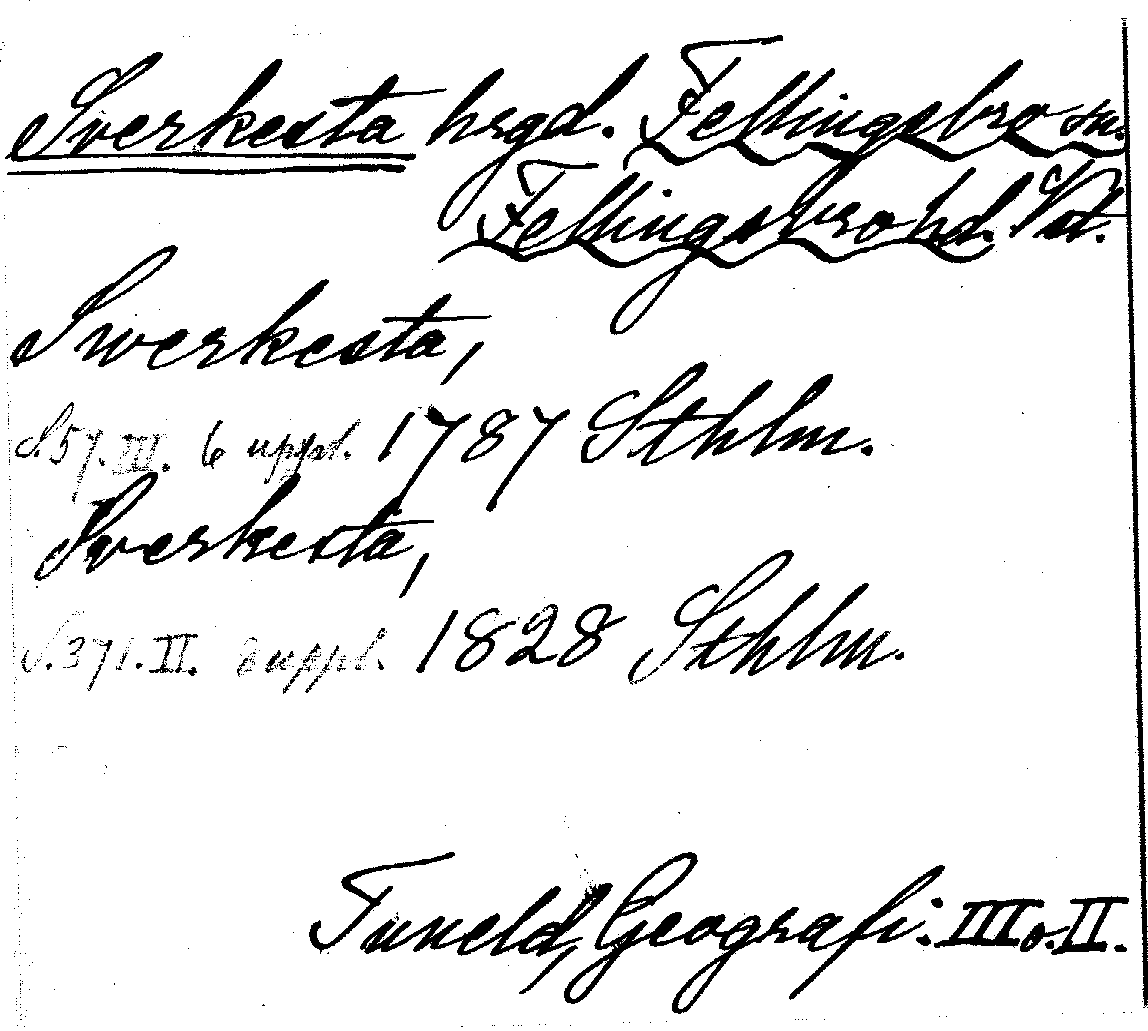 Sverkesta hrgd. Fellingsbro sn.
Fellingsbro hd. Vstm.
Swerkesta,
S.57.III. 6 uppl. 1787 Sthlm.
Sverkesta,
S.371.II. 8 uppl. 1828 Sthlm.
Tuneld, Geografi. III o. II.